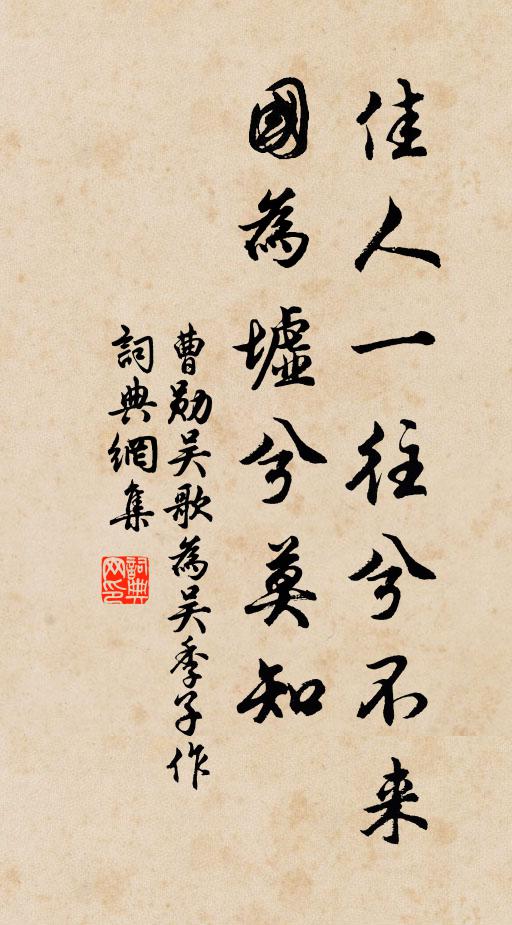 佳人一往兮不来
國為墟兮莫知
曹勛吴歌為吴季子作
詞典網集
詞典網印